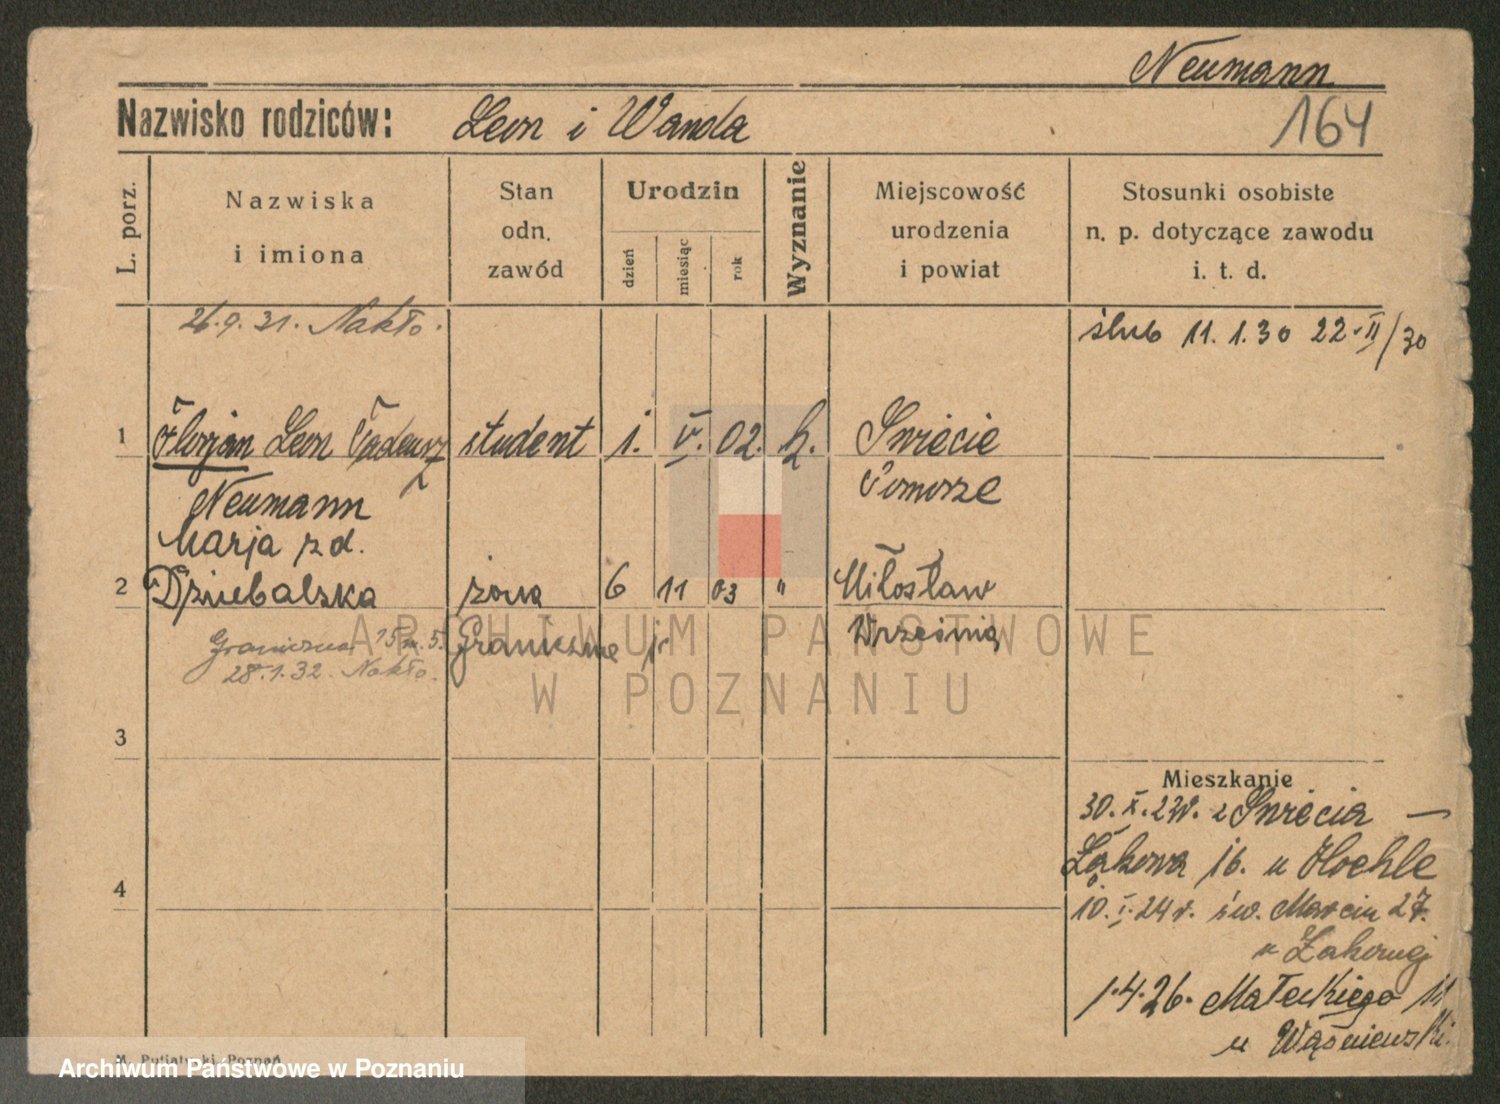 Neumann
Nazwisko rodziców: Leon i Wanda
164
L. porz.
Nazwiska i imiona
Stan odn. zawód
Urodzin
dzień
miesiąc
rok
Wyznanie
Miejscowość urodzenia i powiat
Stosunki osobiste n. p. dotyczące zawodu i. t. d.
26.9.31. Nakło.
ślub 11.1.30 22.II/30
1 Florjan Leon Tadeusz student 1. V. 02. k. Świecie
Neumann Pomorze
Marja zd.
2 Dziubalska żona 6 11 03 " Miłosław
Graniczna 15 m. 5. Graniczna Września
28.1.32. Nakło.
3
4
Mieszkanie
30. X. 22r. z Świecia —
Łąkowa 16. u Hoehle
10. I. 24 r. św. Marcin 27.
u Żakowej
1.4.26. Małeckiego 11
u Wąśniewski.
M. Putiatycki, Poznań
ARCHIWUM PAŃSTWOWE
W POZNANIU
Archiwum Państwowe w Poznaniu